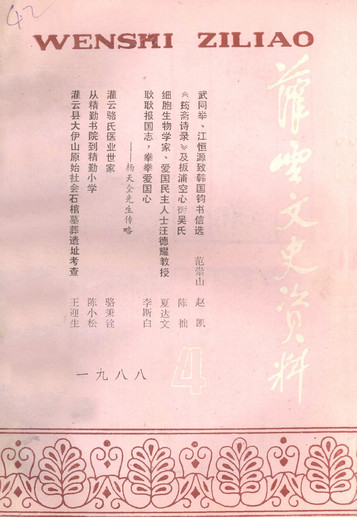 42
WENSHI ZILIAO
灌雲文史资料
武同举、江恒源致韩国钧书信选 范崇山 赵凯
《药斋诗录》及板浦空心街吴氏 陈拙
细胞生物学家、爱国民主人士汪德耀教授 夏达文
耿耿报国志，拳拳爱国心
——杨天全先生传略 李斯白
灌云骆氏医业世家 骆秉诠
从精勤书院到精勤小学 陈小松
灌云县大伊山原始社会石棺墓葬遗址考查 王迎生
4
一九八八